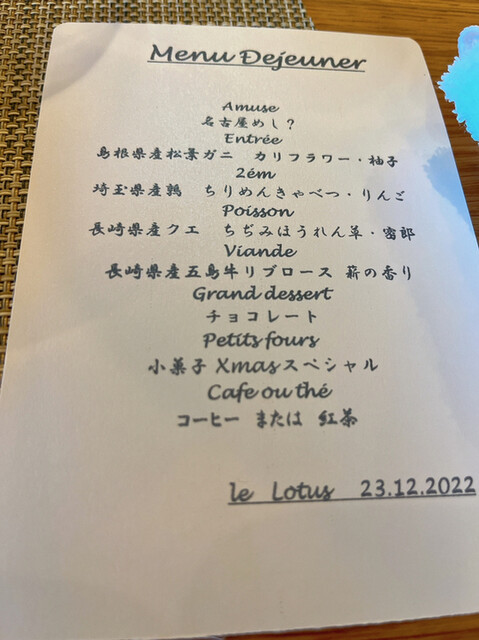 Menu Dejeuner
Amuse
名古屋めし?
Entrée
島根県産松葉ガニ カリフラワー・柚子
2ém
埼玉県産鶉 ちりめんきゃべつ・りんご
Poisson
長崎県産クエ ちぢみほうれん草・雲丹
Viande
長崎県産五島牛リブロース 薪の香り
Grand dessert
チョコレート
Petits fours
小菓子 Xmasスペシャル
Cafe ou thé
コーヒー または 紅茶
le Lotus 23.12.2022